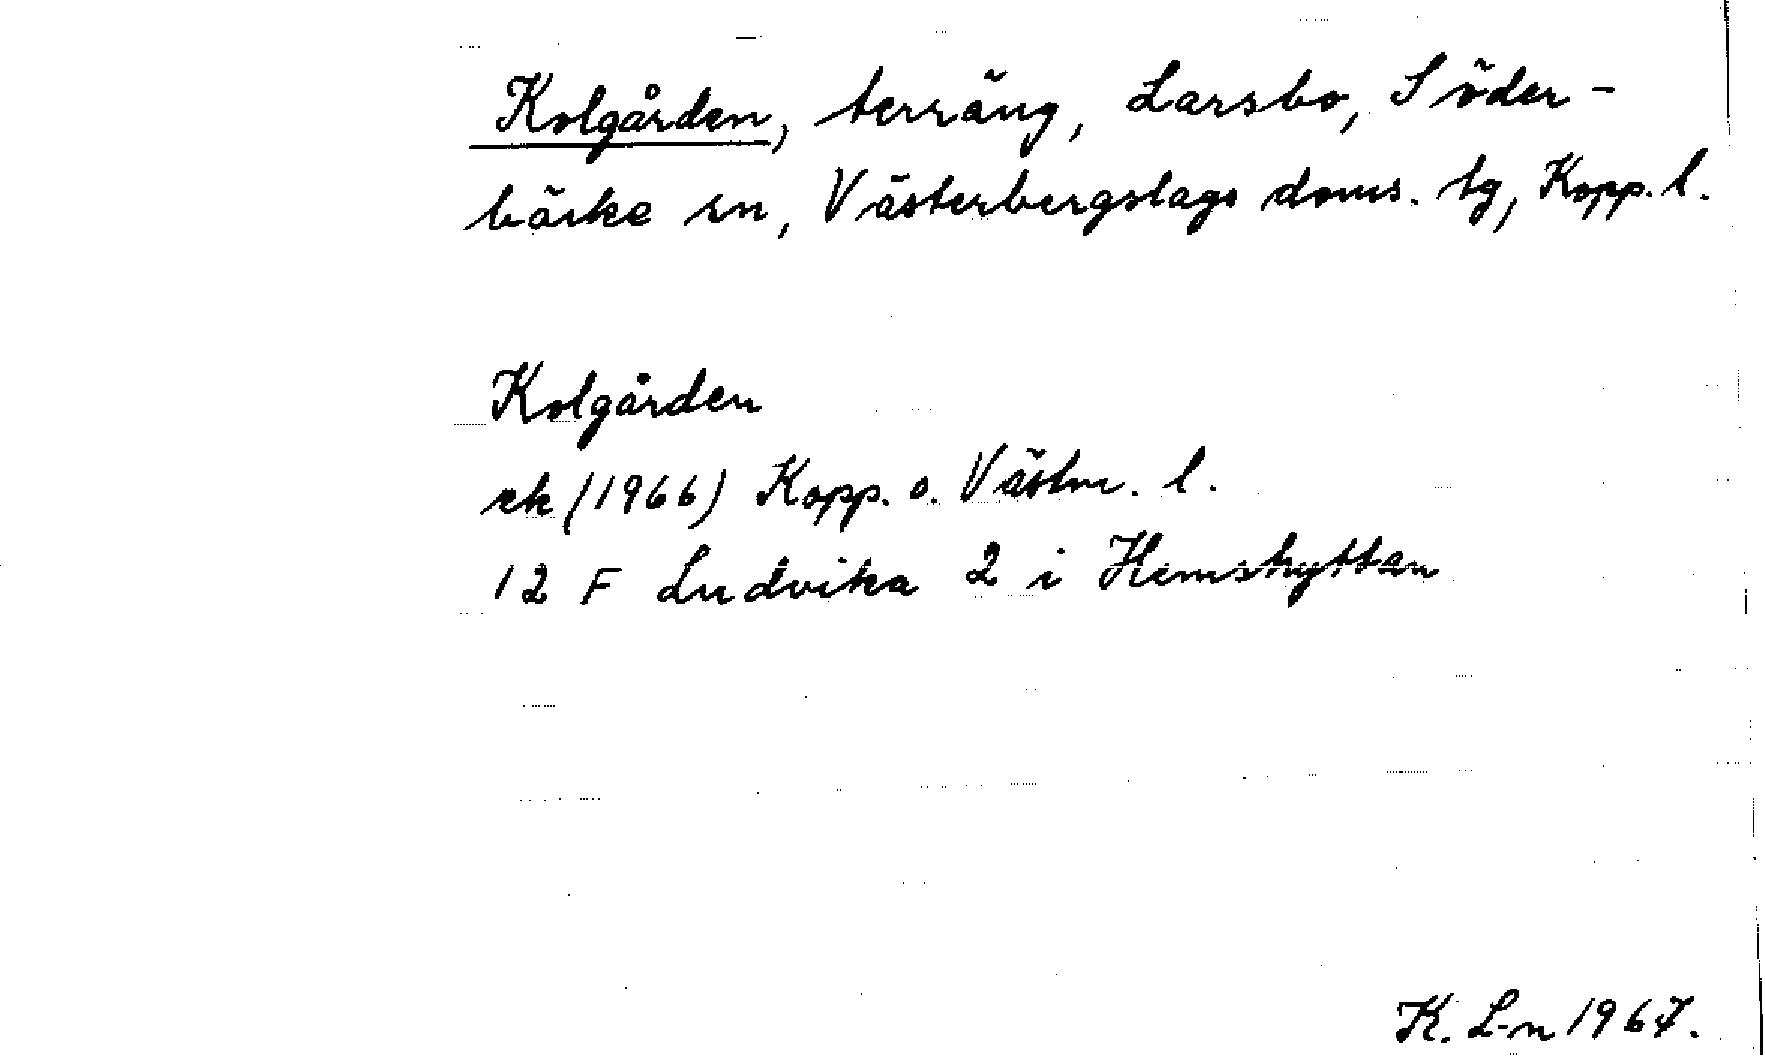 Kolgården, terräng, Larsbo, Söder-
bärke sn, Västerbergslags doms. tg, Kopp. l.
Kolgården
ek (1966) Kopp. o. Västm. l.
12 F Ludvika 2 i Hemshyttan
K. L-n 1967.